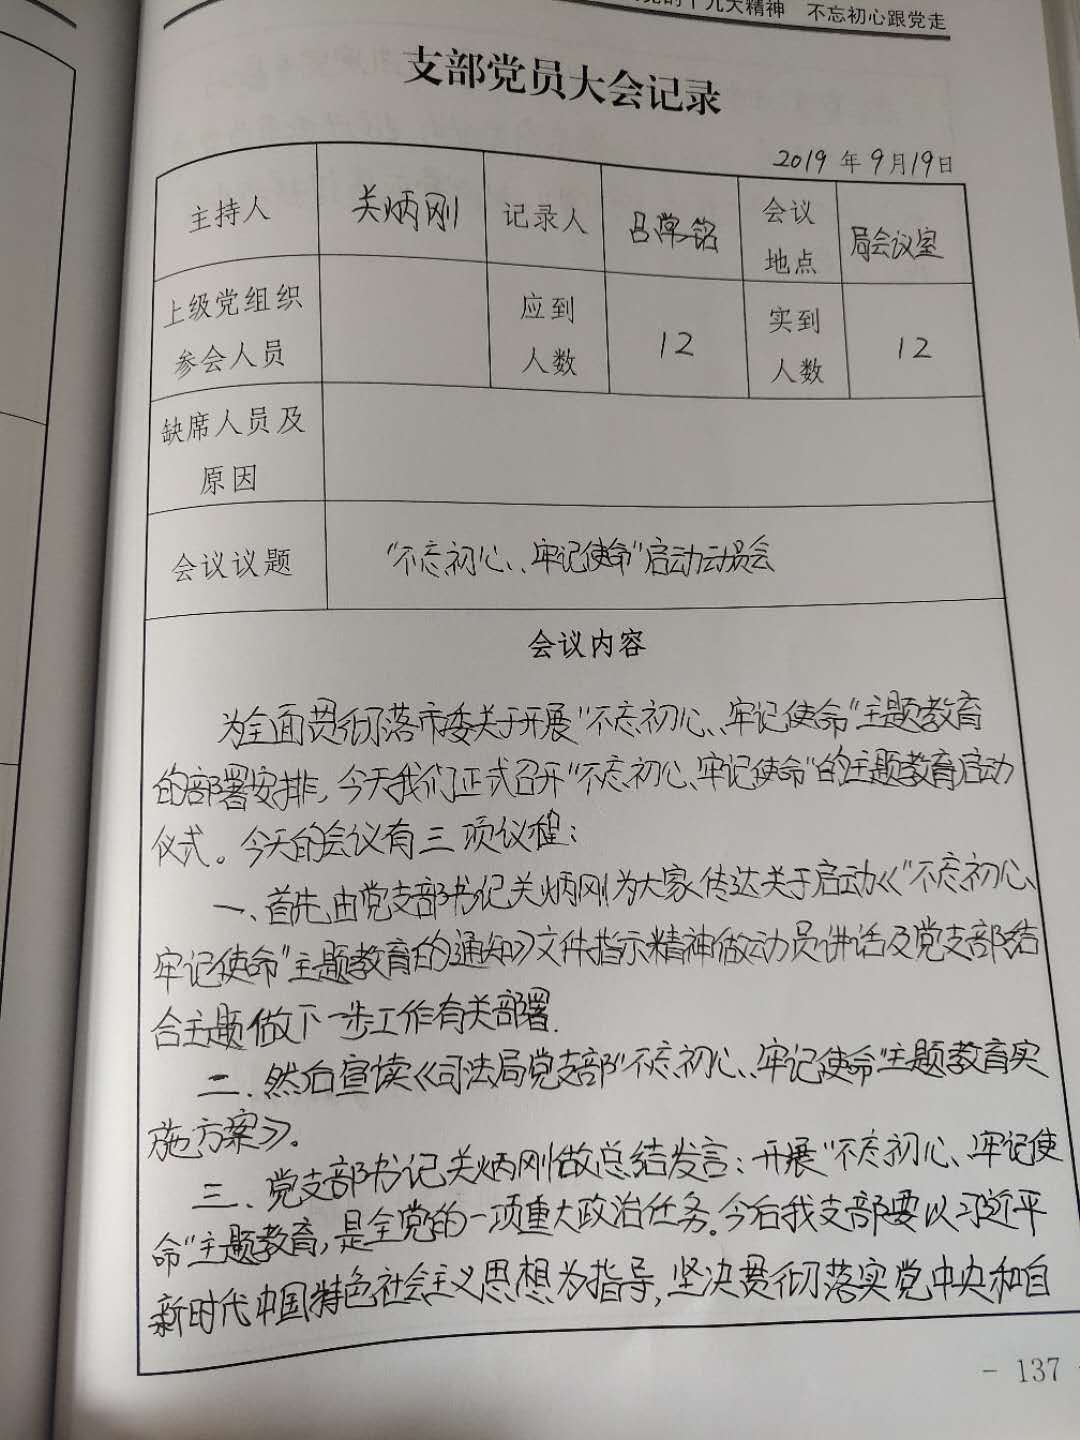 的十九大精神 不忘初心跟党走
支部党员大会记录
2019年9月19日
主持人 关炳刚 记录人 吕常铭 会议地点 局会议室
上级党组织参会人员 应到人数 12 实到人数 12
缺席人员及原因
会议议题 “不忘初心、牢记使命”启动动员会
会议内容
为全面贯彻落市委关于开展“不忘初心、牢记使命”主题教育
的部署安排，今天我们正式召开“不忘初心、牢记使命”的主题教育启动
仪式。今天的会议有三项议程：
一、首先，由党支部书记关炳刚为大家传达关于启动《“不忘初心、
牢记使命”主题教育的通知》文件指示精神做动员讲话及党支部结
合主题做下一步工作有关部署.
二、然后宣读《司法局党支部“不忘初心、牢记使命”主题教育实
施方案》。
三、党支部书记关炳刚做总结发言：开展“不忘初心、牢记使
命”主题教育，是全党的一项重大政治任务。今后我支部要以习近平
新时代中国特色社会主义思想为指导，坚决贯彻落实党中央和自
- 137